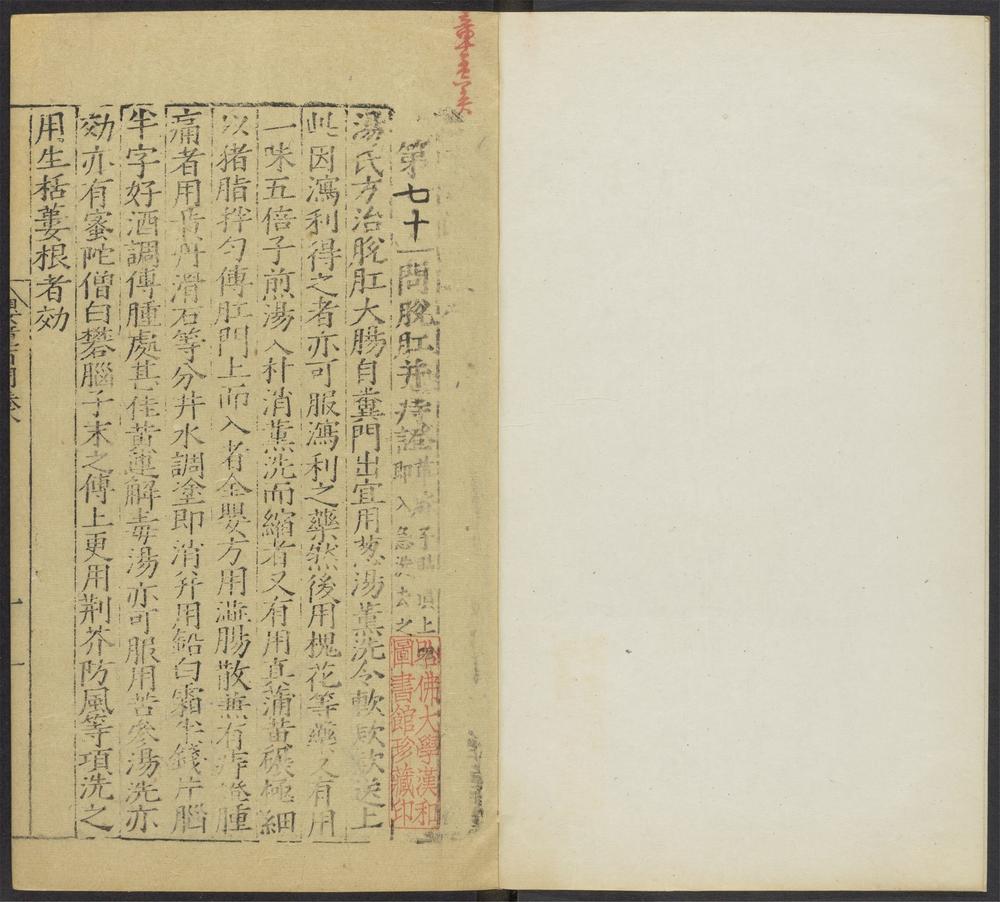 第七十一問脫肛并痔證
即入急洗去之
湯氏方治脫肛大腸自糞門出宜用葱湯薰洗令軟款款送上
此因瀉利得之者亦可服瀉利之藥然後用槐花等藥又有用
一味五倍子煎湯入朴消薰洗而縮者又有用真蒲黃碾極細
以猪脂拌勻傅肛門上而入者全嬰方用澁腸散兼有痔瘡腫
痛者用黃丹滑石等分井水調塗即消并用鉛白霜半錢片腦
半字好酒調傅腫處甚佳黃連解毒湯亦可服用苦參湯洗亦
効亦有蜜陀僧白礬腦子末之傅上更用荆芥防風等項洗之
用生栝蔞根者効
哈佛大學漢和
圖書館珍藏印